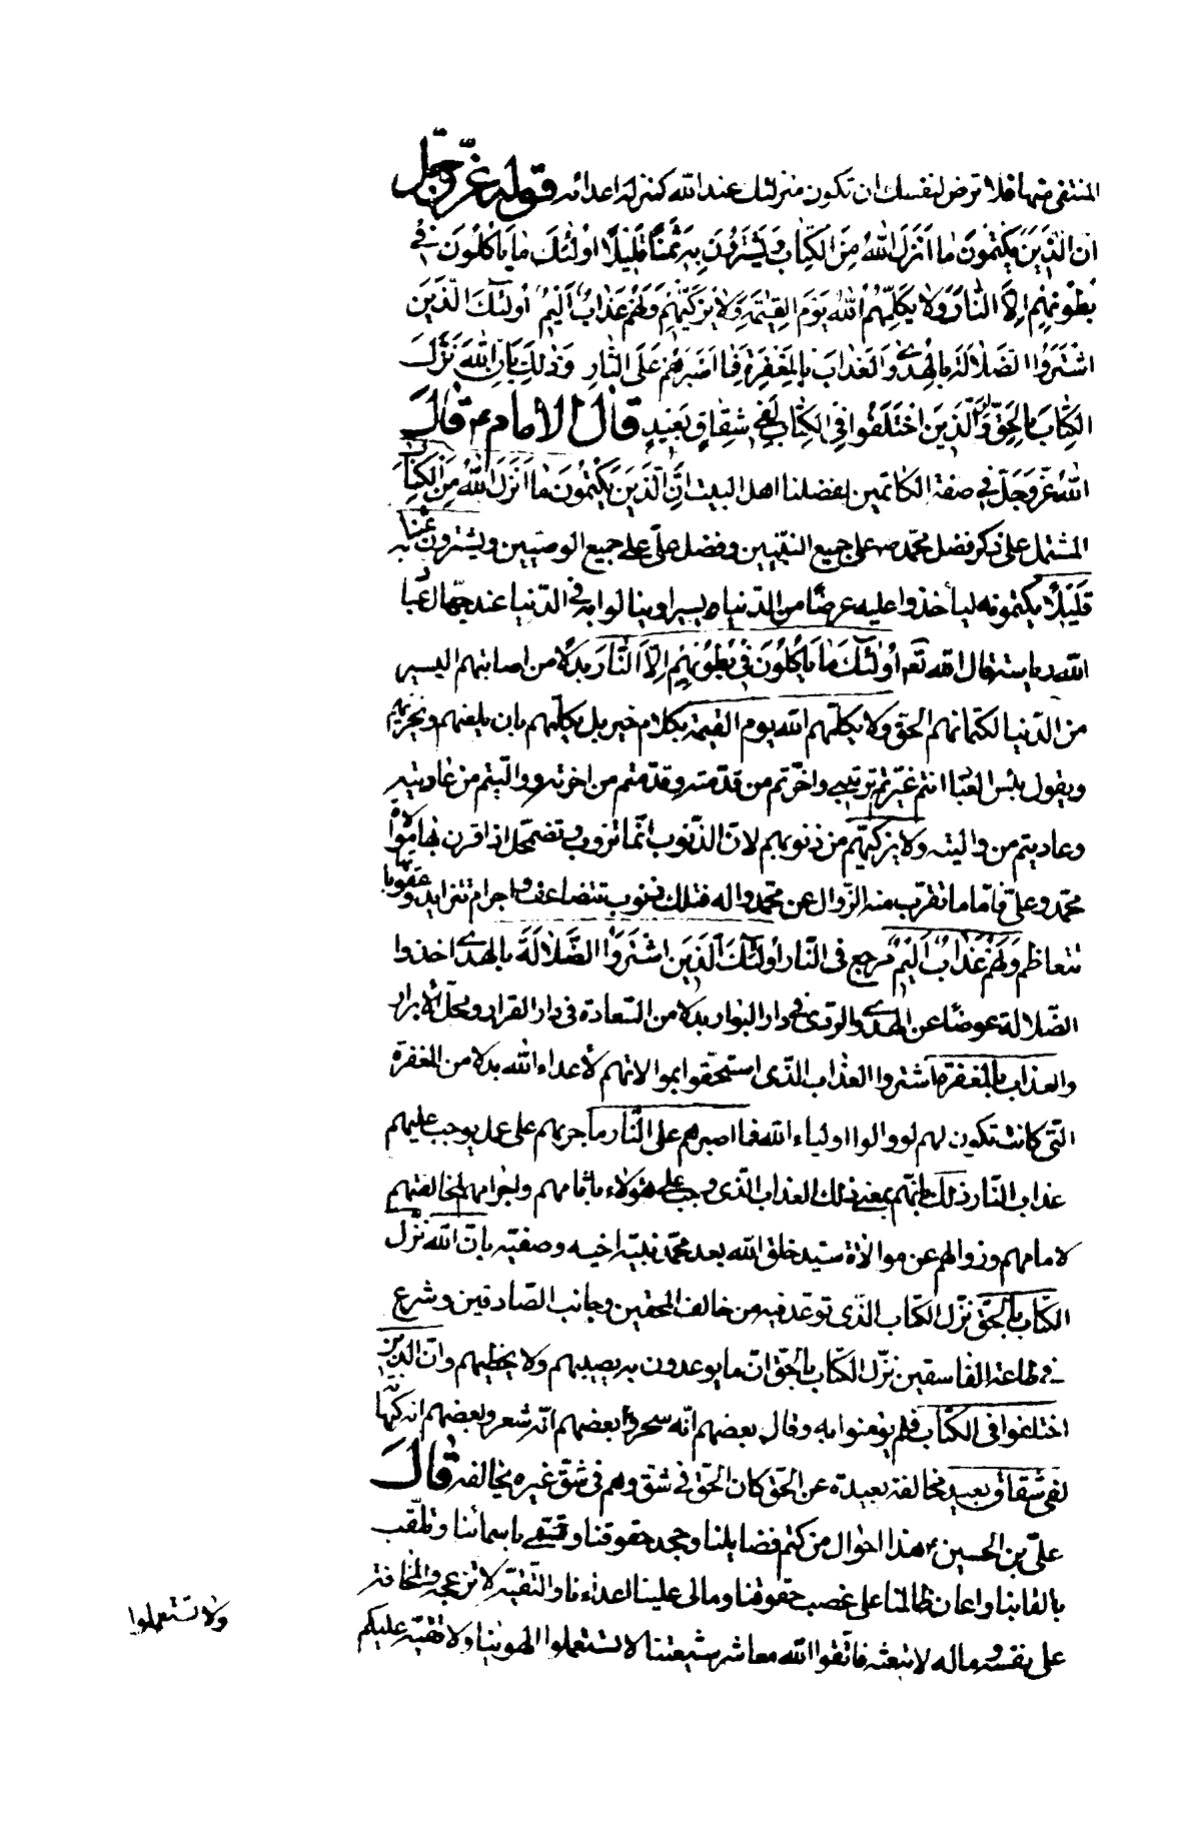 المنتفي منها فلا ترض لنفسك ان تكون منزلتك عند الله كمنزلة اعدائه قوله عزّ وجلّ
اِنَّ الَّذِينَ يَكْتُمُونَ مَا اَنْزَلَ اللهُ مِنَ الْكِتَابِ وَيَشْتَرُونَ بِهِ ثَمَنًا قَلِيلًا اُولٰئِكَ مَا يَاْكُلُونَ فِي
بُطُونِهِمْ اِلَّا النَّارَ وَلَا يُكَلِّمُهُمُ اللهُ يَوْمَ الْقِيٰمَةِ وَلَا يُزَكِّيهِمْ وَلَهُمْ عَذَابٌ اَلِيمٌ اُولٰئِكَ الَّذِينَ
اشْتَرَوُا الضَّلَالَةَ بِالْهُدىٰ وَالْعَذَابَ بِالْمَغْفِرَةِ فَمَا اَصْبَرَهُمْ عَلَى النَّارِ وَذٰلِكَ بِاَنَّ اللهَ نَزَّلَ
الْكِتَابَ بِالْحَقِّ وَاِنَّ الَّذِينَ اخْتَلَفُوا فِي الْكِتَابِ لَفِي شِقَاقٍ بَعِيدٍ قال الامام ع قال
اللهُ عَزَّ وَجَلَّ في صفة الكاتمين لفضلنا اهل البيت اِنَّ الَّذِينَ يَكْتُمُونَ مَا اَنْزَلَ اللهُ مِنَ الْكِتَابِ
المشتمل على ذكر فضل محمّد ص على جميع النبيين وفضل عليّ على جميع الوصيين ويشترون به ثمنا
قَلِيلًا يكتمونه ليأخذوا عليه عرضًا من الدّنيا يسيرا وينالوا به في الدّنيا عند جهّال عباد
الله رياسة قال الله تعه اُولٰئِكَ مَا يَاْكُلُونَ فِي بُطُونِهِمْ اِلَّا النَّارَ بدلا من اصابتهم اليسير
من الدّنيا لكتمانهم الحق ولا يكلّمهم الله يوم القيمة بكلام خير بل يكلّمهم بان يلعنهم ويخزيهم
ويقول بئس العباد انتم غيّرتم ترتيبي واخّرتم من قدّمته وقدّمتم من اخّرته وواليتم من عاديته
وعاديتم من واليته ولا يزكّيهم من ذنوبهم لانّ الذّنوب انّما تذوب وتضمحلّ اذا قرن بها موالاة
محمّد وعليّ فامّا ما تقرب منه الزّوال عن محمّد واله فتلك ذنوب تتضاعف واجرام تتزايد وعقوباتها
تتعاظم وَلَهُمْ عَذَابٌ اَلِيمٌ مرجع في النّار اُولٰئِكَ الَّذِينَ اشْتَرَوُا الضَّلَالَةَ بالهدى اخذوا
الضّلالة عوضًا عن الهدى والردى في دار البوار بدلا من السّعادة في دار القرار ومحلّ الأبرار
والعذاب بالمغفرة اشتروا العذاب الّذي استحقّوا بموالاتهم لأعداء الله بدلا من المغفرة
الّتي كانت تكون لهم لو والوا اولياء الله فما اصبرهم على النّار ما جرءهم على عمل يوجب عليهم
عذاب النّار ذلك بانّهم يعني ذلك العذاب الّذي وجب على هؤلاء باثامهم واجرامهم لمخالفتهم
لامامهم وزوالهم عن موالاة سيّد خلق الله بعد محمّد نبيّه اخيه وصفيّه بانّ الله نزّل
الكتاب بالحقّ نزّل الكتاب الّذي توعّد فيه من خالف المحقين وجانب الصّادقين وشرع
في طاعة الفاسقين نزّل الكتاب بالحقّ انّ ما يوعدون به يصيبهم ولا يخطيهم وانّ الّذين
اختلفوا في الكتاب فلم يؤمنوا به وقال بعضهم انّه سحر وبعضهم انّه شعر وبعضهم انّه كهانة
لفي شقاق بعيد مخالفة بعيدة عن الحقّ كان الحقّ في شقّ وهم في شقّ غيره يخالفه قال
عليّ بن الحسين ع هذا احوال من كتم فضايلنا وجحد حقوقنا وتسمّى باسمائنا وتلقّب
بالقابنا واعان ظالمنا على غصب حقوقنا ومالى علينا اعداءنا والتقيّة لا تزعجه والمخافة
على نفسه وماله لا تبعثه فاتّقوا الله معاشر شيعتنا لا تستعملوا الهوينا ولا تقيّة عليكم
ولا تستعملوا